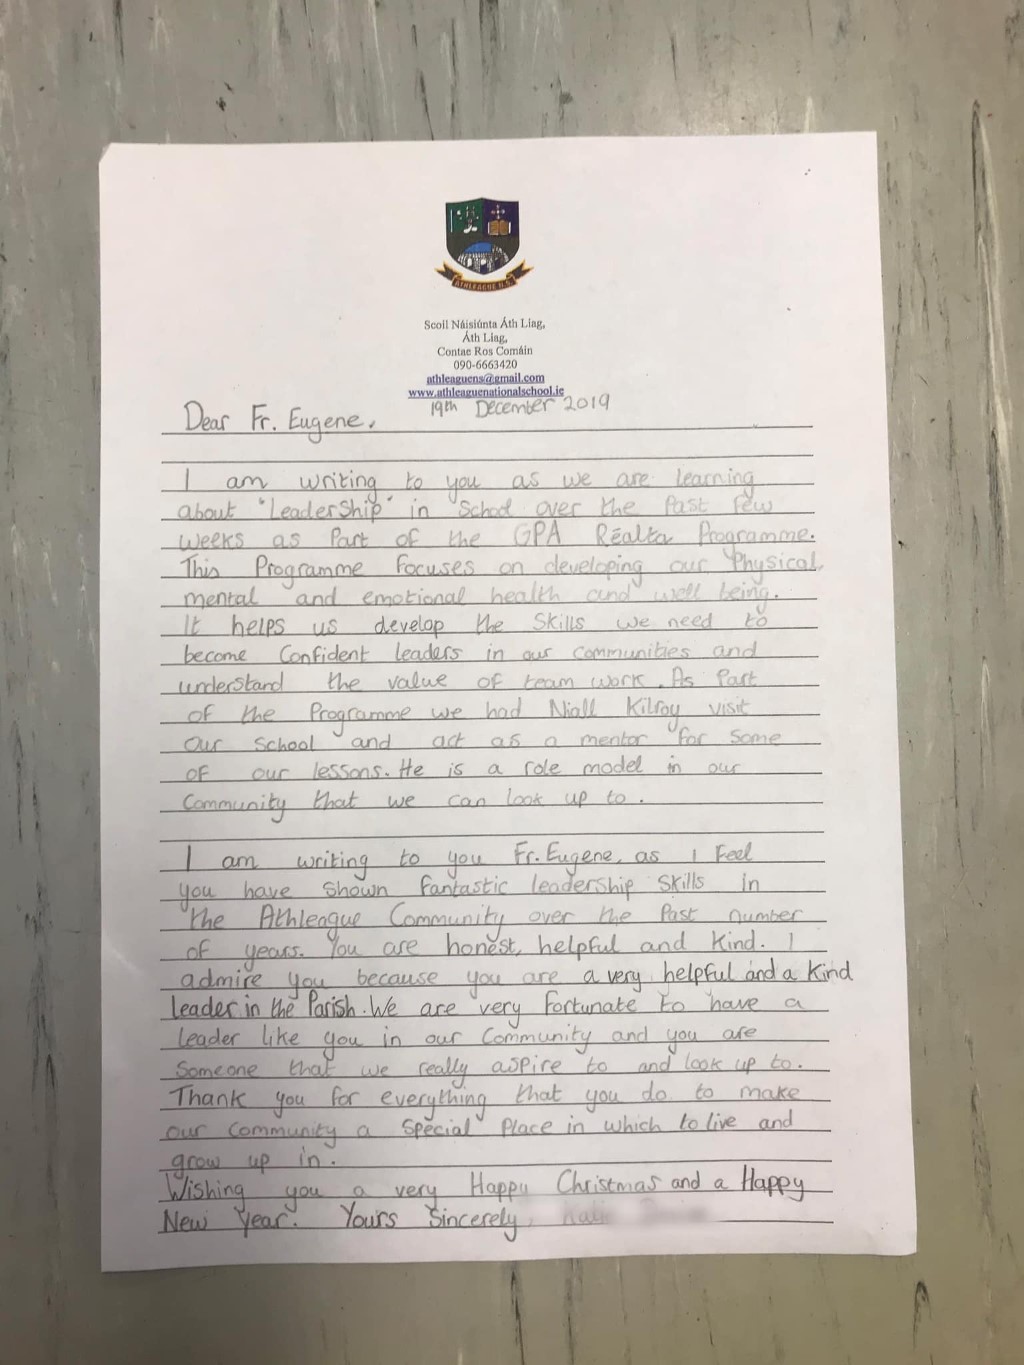 ATHLEAGUE N.S
Scoil Náisiúnta Áth Liag,
Áth Liag,
Contae Ros Comáin
090-6663420
athleaguens@gmail.com
www.athleaguenationalschool.ie
19th December 2019
Dear Fr. Eugene,
I am writing to you as we are learning
about "Leadership" in School over the Past few
weeks as Part of the GPA Réalta Programme.
This Programme Focuses on developing our Physical,
mental and emotional health and well being.
It helps us develop the Skills we need to
become Confident leaders in our communities and
understand the value of team work. As Part
of the Programme we had Niall Kilroy visit
our school and act as a mentor for some
of our lessons. He is a role model in our
Community that we can look up to.
I am writing to you Fr. Eugene, as I Feel
you have shown fantastic leadership skills in
the Athleague Community over the Past number
of years. You are honest, helpful and kind. I
admire you because you are a very helpful and a kind
leader in the Parish. We are very fortunate to have a
leader like you in our Community and you are
Someone that we really aspire to and look up to.
Thank you for everything that you do to make
our community a Special Place in which to live and
grow up in.
Wishing you a very Happy Christmas and a Happy
New Year. Yours Sincerely,